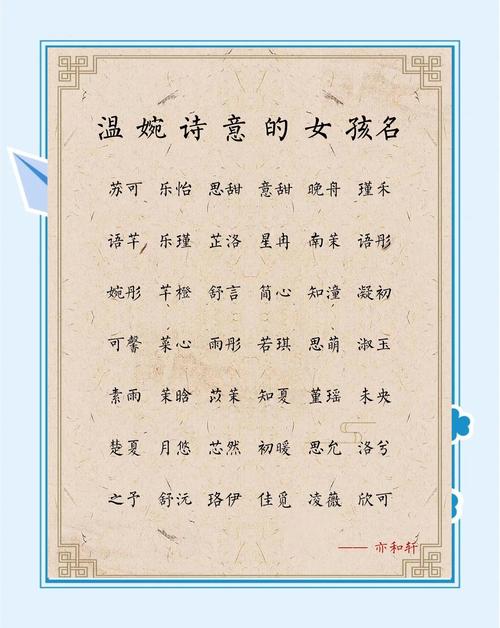 温婉诗意的女孩名
苏可 乐怡 思甜 意甜 晚舟 瑾禾
语芊 乐瑾 芷洛 星冉 南茉 语彤
婉彤 芊橙 舒言 简心 知潼 凝初
可馨 菜心 雨彤 若琪 思萌 淑玉
素雨 茉晗 苡茉 知夏 堇瑶 未央
楚夏 月悠 芯然 初暖 思允 洛兮
之予 舒沅 珞伊 佳觅 凌薇 欣可
—— 亦和轩